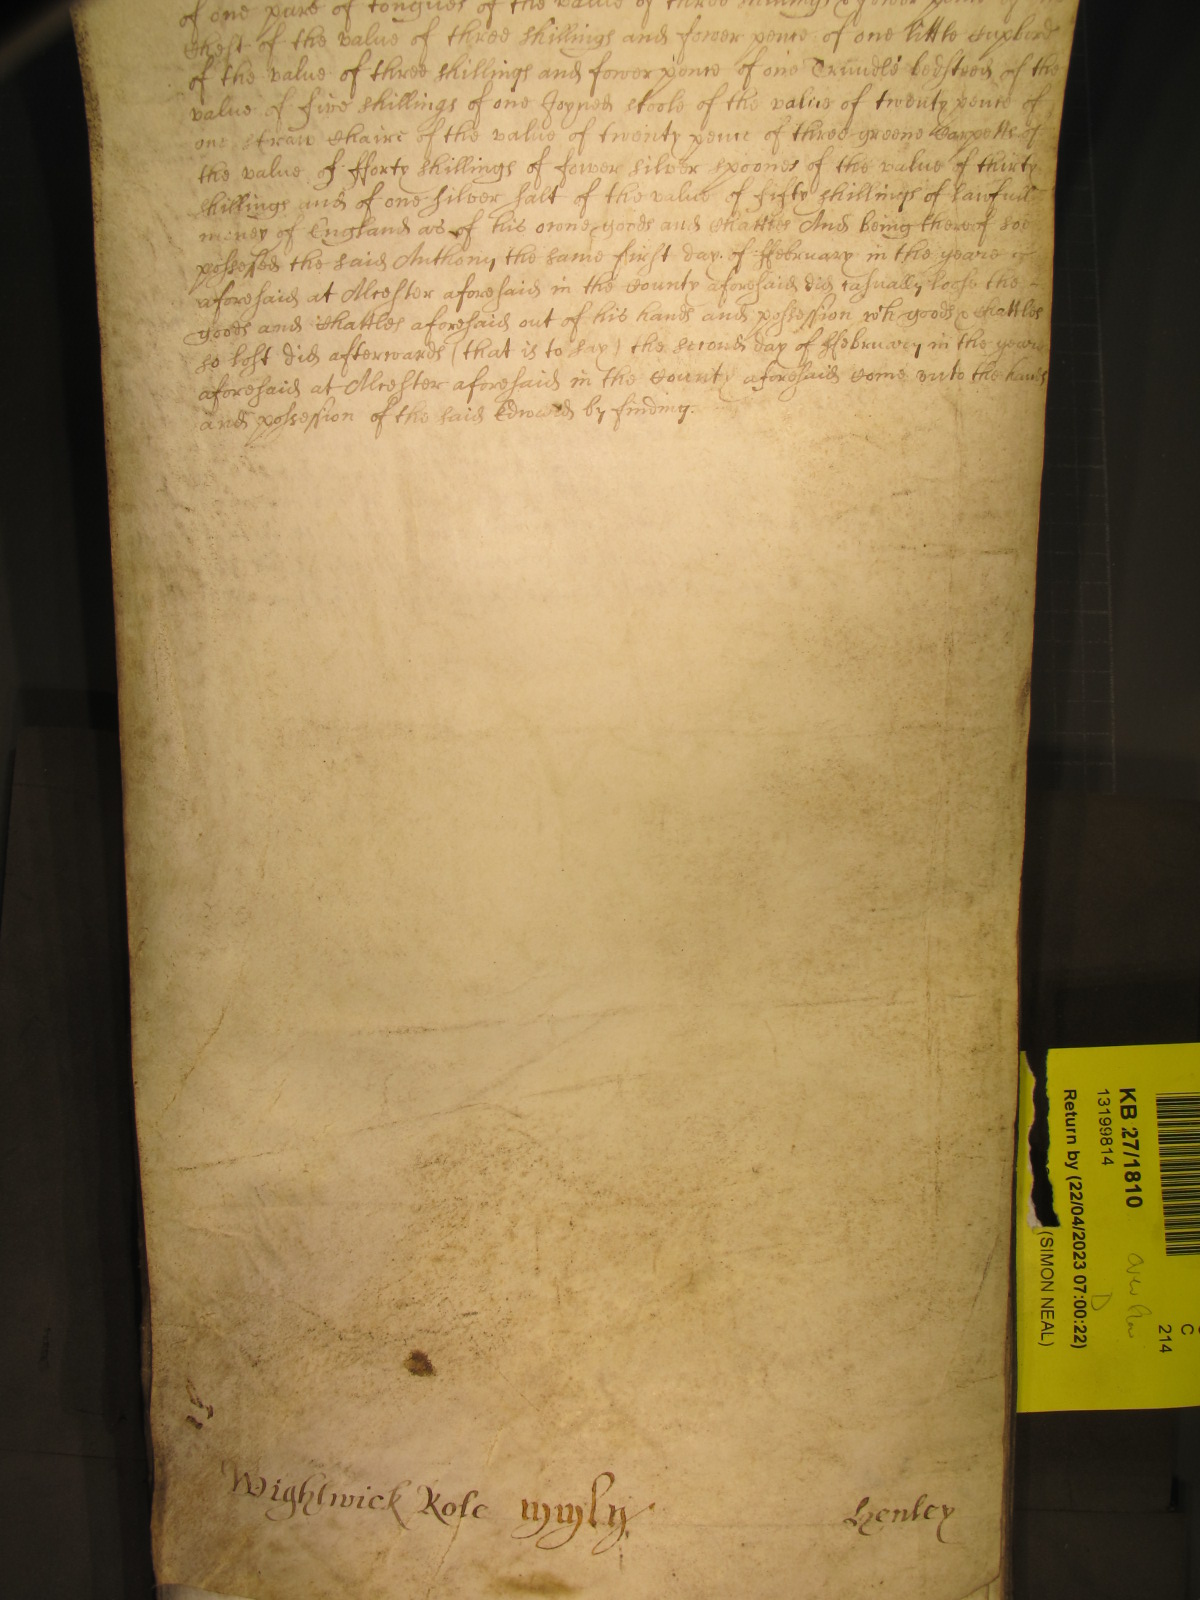 of one pare of tongues of the value of three shillings & fower pence of one
Chest of the value of three shillings and fower pence of one little Cupbord
of the value of three shillings and fower pence of one Trundle bedsteed of the
value of five shillings of one Joyned stoole of the value of twenty pence of
one straw Chaire of the value of twenty pence of three greene Carpetts of
the value of fforty shillings of fower silver spoones of the value of thirty
shillings and of one silver salt of the value of fifty shillings of lawfull
money of England as of his owne goods and Chattles And being thereof soe
possessed the said Anthony the same first day of ffebruary in the yeare
aforesaid at Alcester aforesaid in the County aforesaid did casually loose the
goods and Chattles aforesaid out of his hands and possession wch goods & Chattles
so lost did afterwards (that is to say) the second day of ffebruary in the yeare
aforesaid at Alcester aforesaid in the County aforesaid Come unto the hands
and possession of the said Edward by finding.
Wightwick Rose mmlij
Henley
KB 27/1810
13199814
Return by (22/04/2023 07:00:22)
(SIMON NEAL)
D
C
214